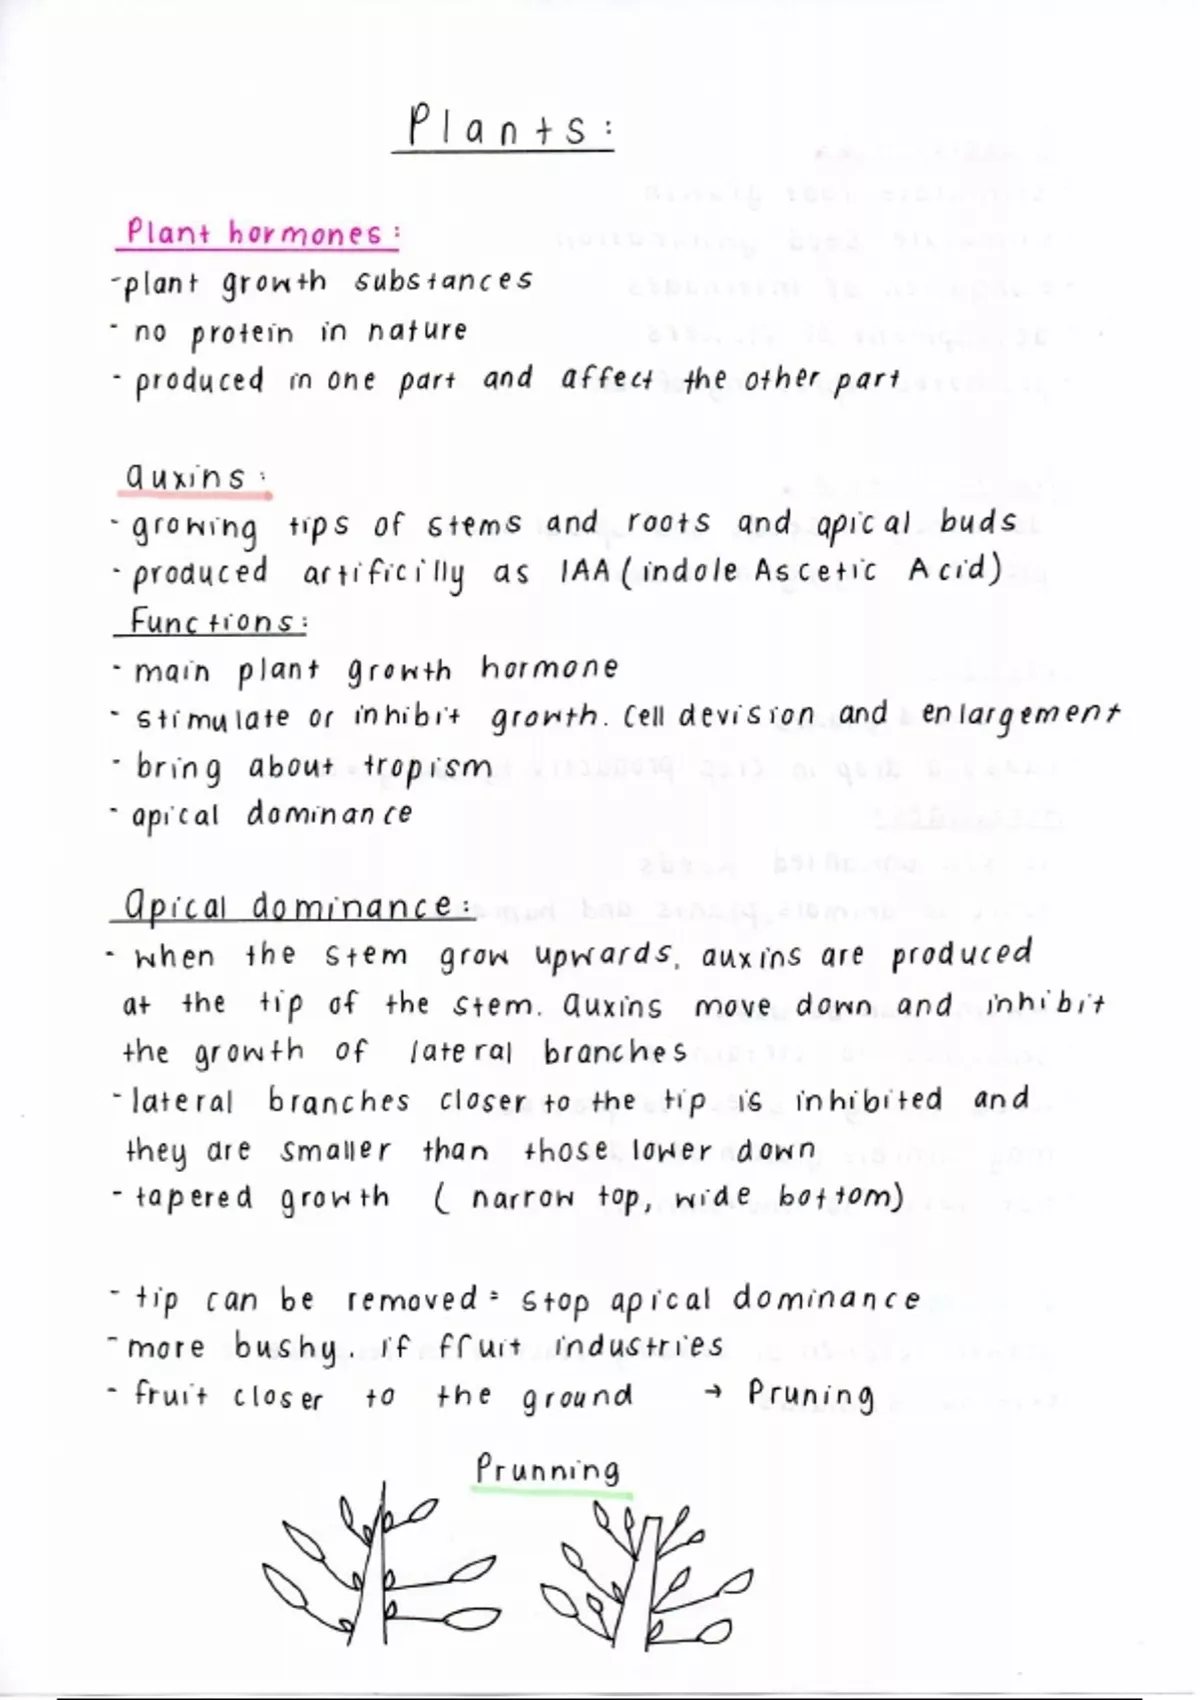 Plants:
Plant hormones:
-plant growth substances
- no protein in nature
- produced in one part and affect the other part
auxins:
- growing tips of stems and roots and apical buds
- produced artificilly as IAA (indole Ascetic Acid)
Functions:
- main plant growth hormone
- stimulate or inhibit growth. Cell devision and enlargement
- bring about tropism
- apical dominance
Apical dominance:
- when the stem grow upwards, auxins are produced
at the tip of the stem. auxins move down and inhibit
the growth of lateral branches
- lateral branches closer to the tip is inhibited and
they are smaller than those lower down
- tapered growth ( narrow top, wide bottom)
- tip can be removed = stop apical dominance
- more bushy. if fruit industries
- fruit closer to the ground → Pruning
Prunning